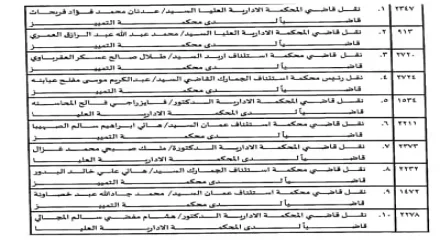 ٢٣٤٧ ١. نقل قاضي المحكمة الادارية العليا السيد/ عدنان محمد فؤاد فريحات
قاضياً لدى محكمة التمييز
٩١٣ ٢. نقل قاضي المحكمة الادارية العليا السيد/ محمد عبد الله عبد الرازق العمري
قاضياً لدى محكمة التمييز
٢٧٢٠ ٣. نقل قاضي محكمة استئناف اربد السيد/ طلال صالح عسكر العقرباوي
قاضياً لدى محكمة التمييز
٢٧٢٤ ٤. نقل رئيس محكمة استئناف الجمارك القاضي السيد/ عبدالكريم موسى مفلح عبابنه
قاضياً لدى محكمة التمييز
١٥٣٤ ٥. نقل قاضي المحكمة الادارية الدكتور/ فايز راجي فالح المحاسنه
قاضياً لدى المحكمة الادارية العليا
٢٢١١ ٦. نقل قاضي محكمة استئناف عمان السيد/ هاني ابراهيم سالم
قاضياً لدى محكمة التمييز
٢٣٧٣ ٧. نقل قاضي المحكمة الادارية الدكتورة/ ملك صبحي محمد غزال
قاضياً لدى المحكمة الادارية العليا
٢٢٣٢ ٨. نقل قاضي محكمة استئناف الجمارك السيد/ هاني علي خالد البدور
قاضياً لدى محكمة التمييز
١٤٧٢ ٩. نقل قاضي محكمة استئناف عمان السيد/ محمد جادالله عبد خصاونة
قاضياً لدى المحكمة الادارية العليا
٢٢٧٨ ١٠. نقل قاضي المحكمة الادارية الدكتور/ هشام مفضي سالم المجالي
قاضياً لدى المحكمة الادارية العليا